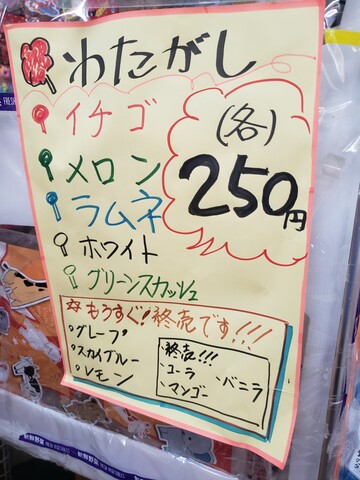 わたがし
イチゴ
メロン
ラムネ
ホワイト
グリーンスカッシュ
(各)
250円
☆もうすぐ!終売です!!!
・グレープ
・スカイブルー
・レモン
終売!!!
・コーラ
・マンゴー
・バニラ
朝鮮野菜